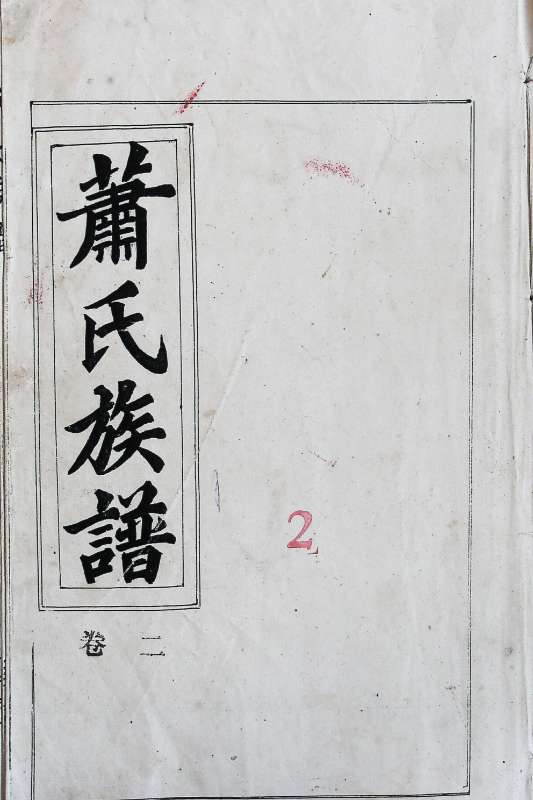 蕭氏族譜
卷二
2